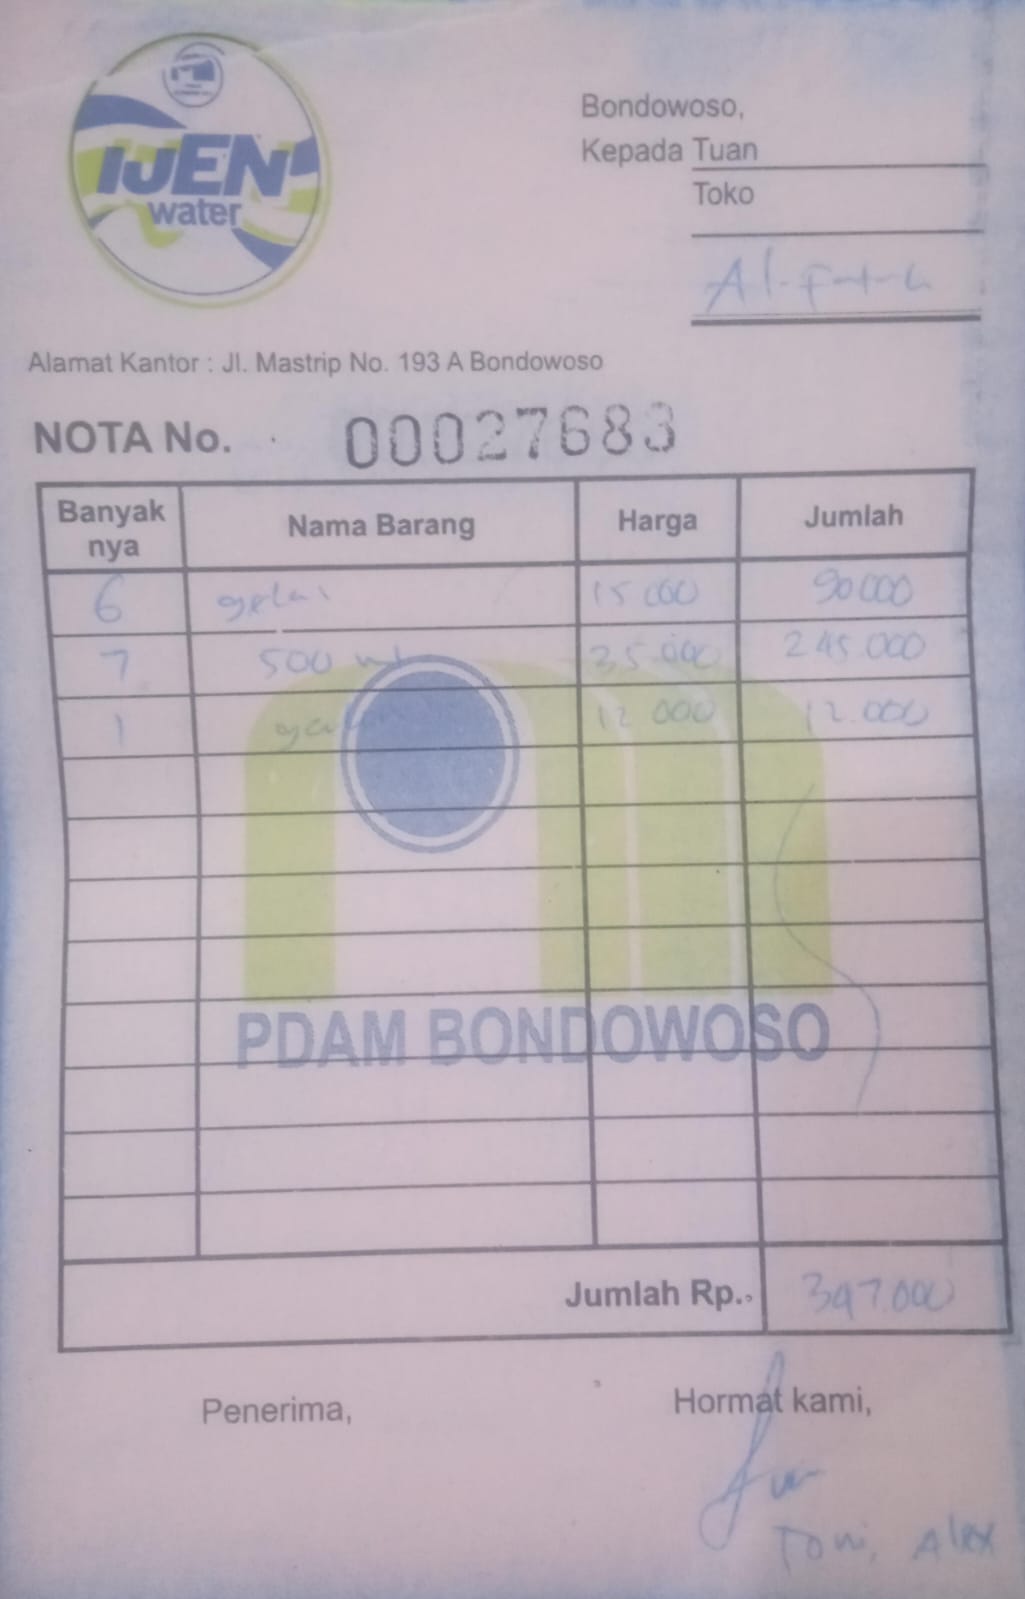 IJEN
water
Bondowoso,
Kepada Tuan
Toko
Alamat Kantor : Jl. Mastrip No. 193 A Bondowoso
NOTA No. 00027683
Banyak nya Nama Barang Harga Jumlah
6 gelas 15 000 90 000
7 500 ml 35.000 245.000
1 galon 12 000 12.000
PDAM BONDOWOSO
Jumlah Rp. 347.000
Penerima, Hormat kami,
Toni, Alex